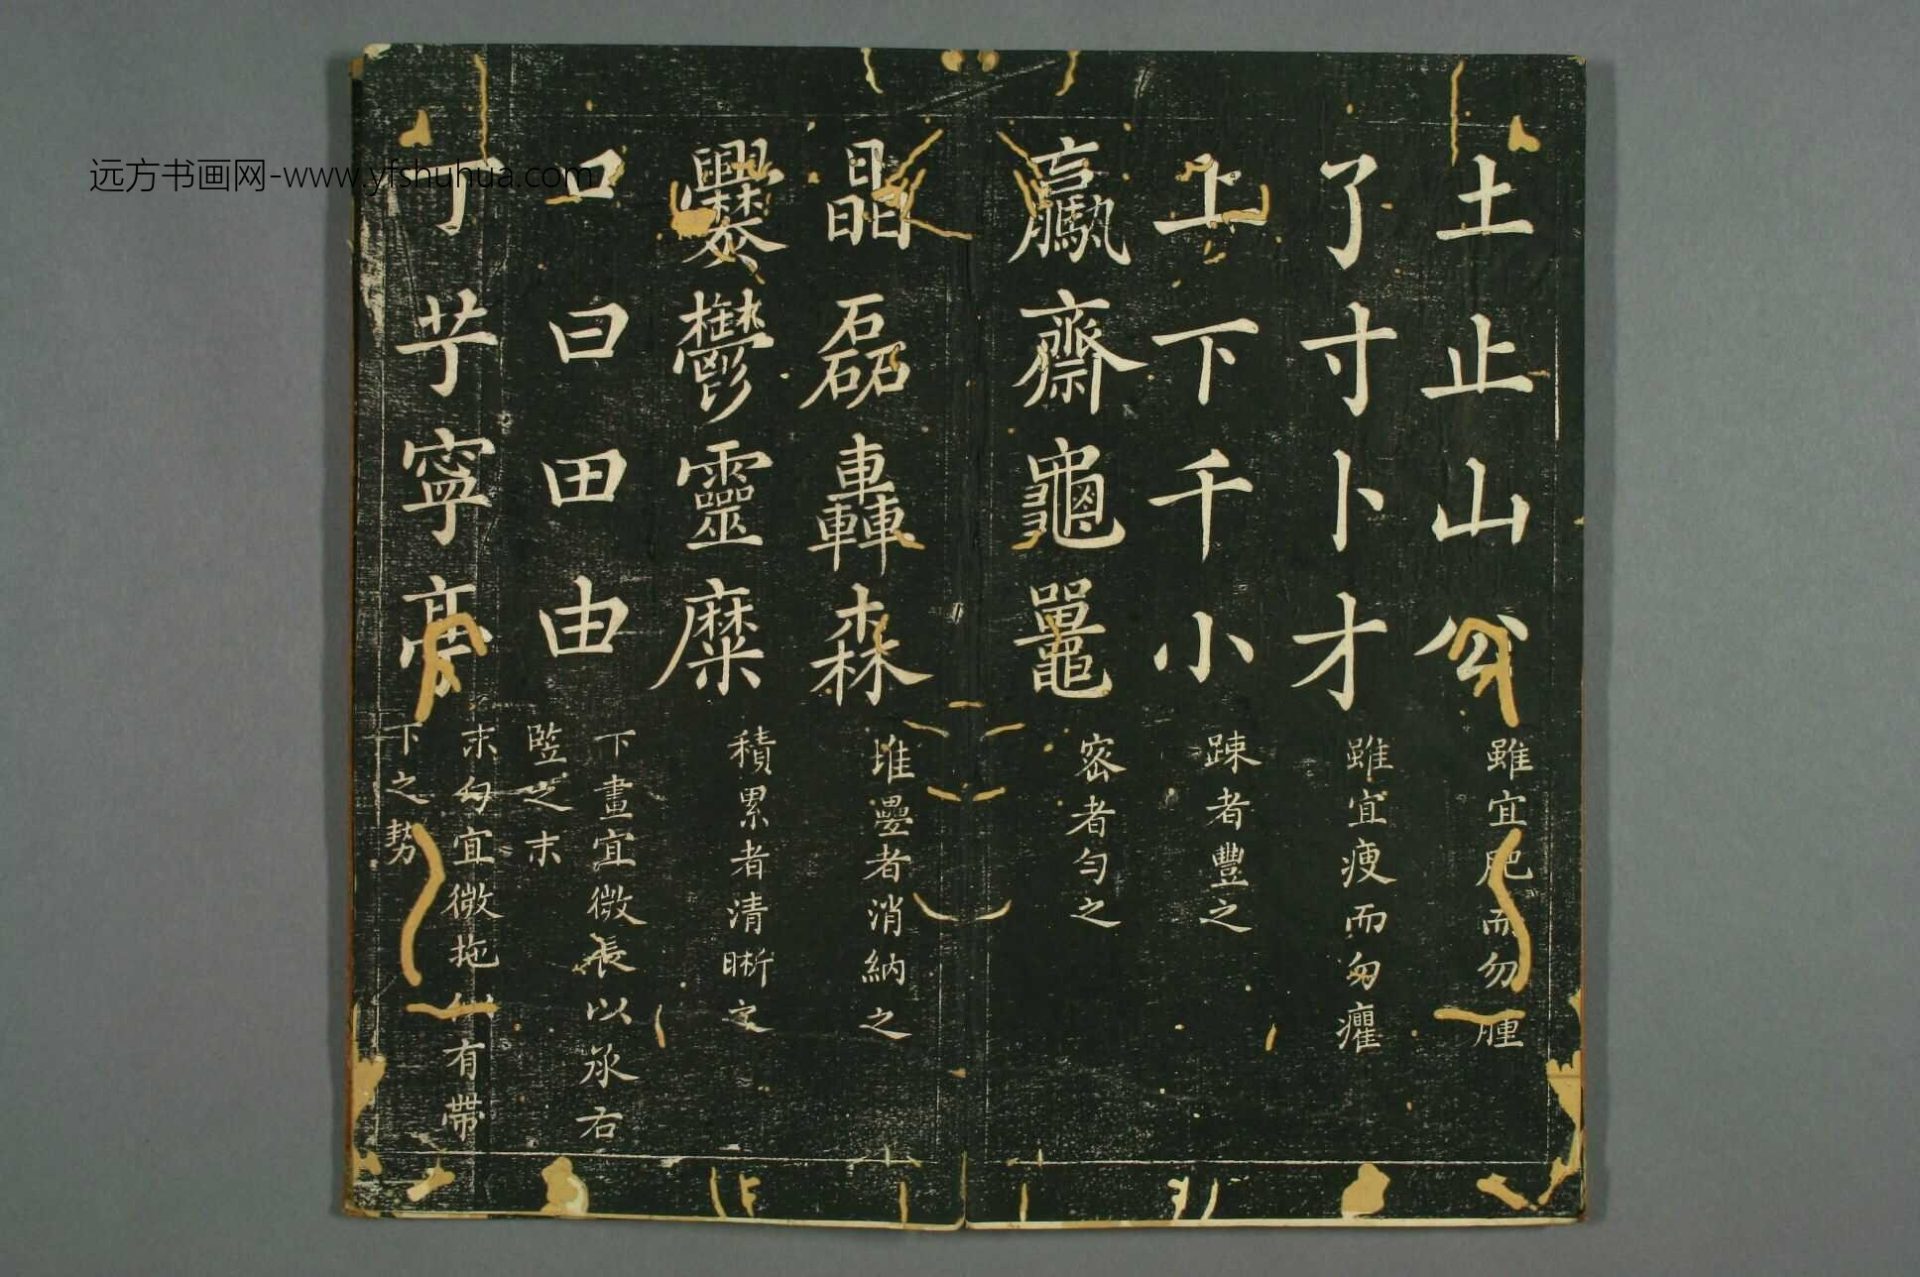 土止山公
雖宜肥而勿腫
了寸卜才
雖宜瘦而勿癯
上下千小
踈者豐之
齋龜鼉
密者勻之
晶磊轟森
堆疊者消納之
爨鬱靈糜
積累者清晰之
口曰田由
下畫宜微長以承右
竪之末
丁芋寧亭
末勾宜微拖 有帶
下之勢
远方书画网-www.yfshuhua.com